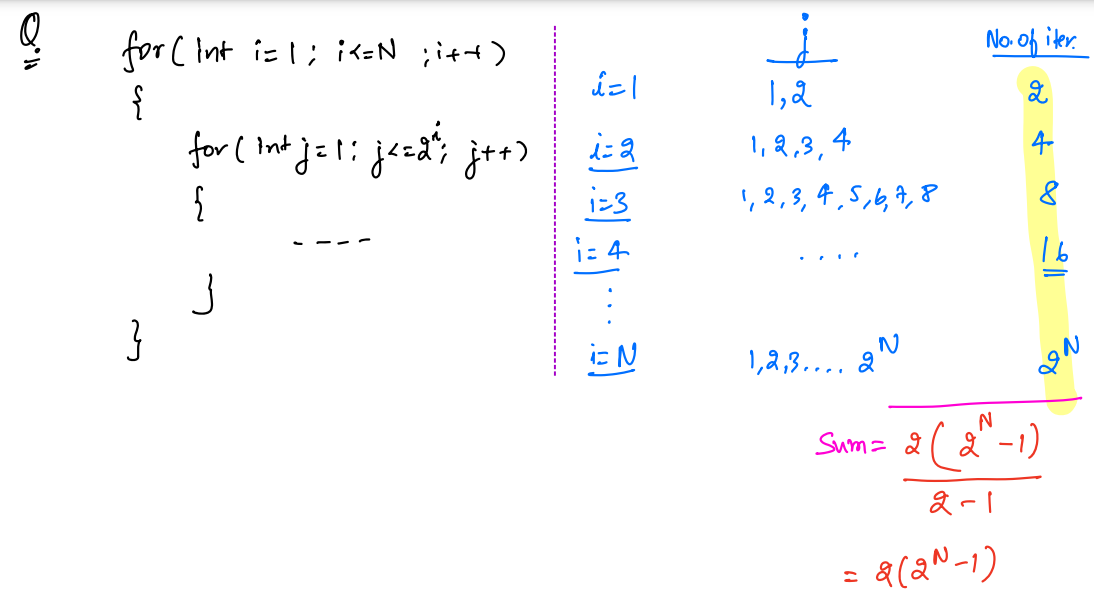 Q.
for( int i=1; i<=N ; i++)
{
for( int j=1; j<=2^i; j++)
{
----
}
}
j No. of iter.
i=1 1,2 2
i=2 1,2,3,4 4
i=3 1,2,3,4,5,6,7,8 8
i=4 .... 16
⋮
i=N 1,2,3.... 2^N 2^N
Sum= 2(2^N-1)
2-1
= 2(2^N-1)